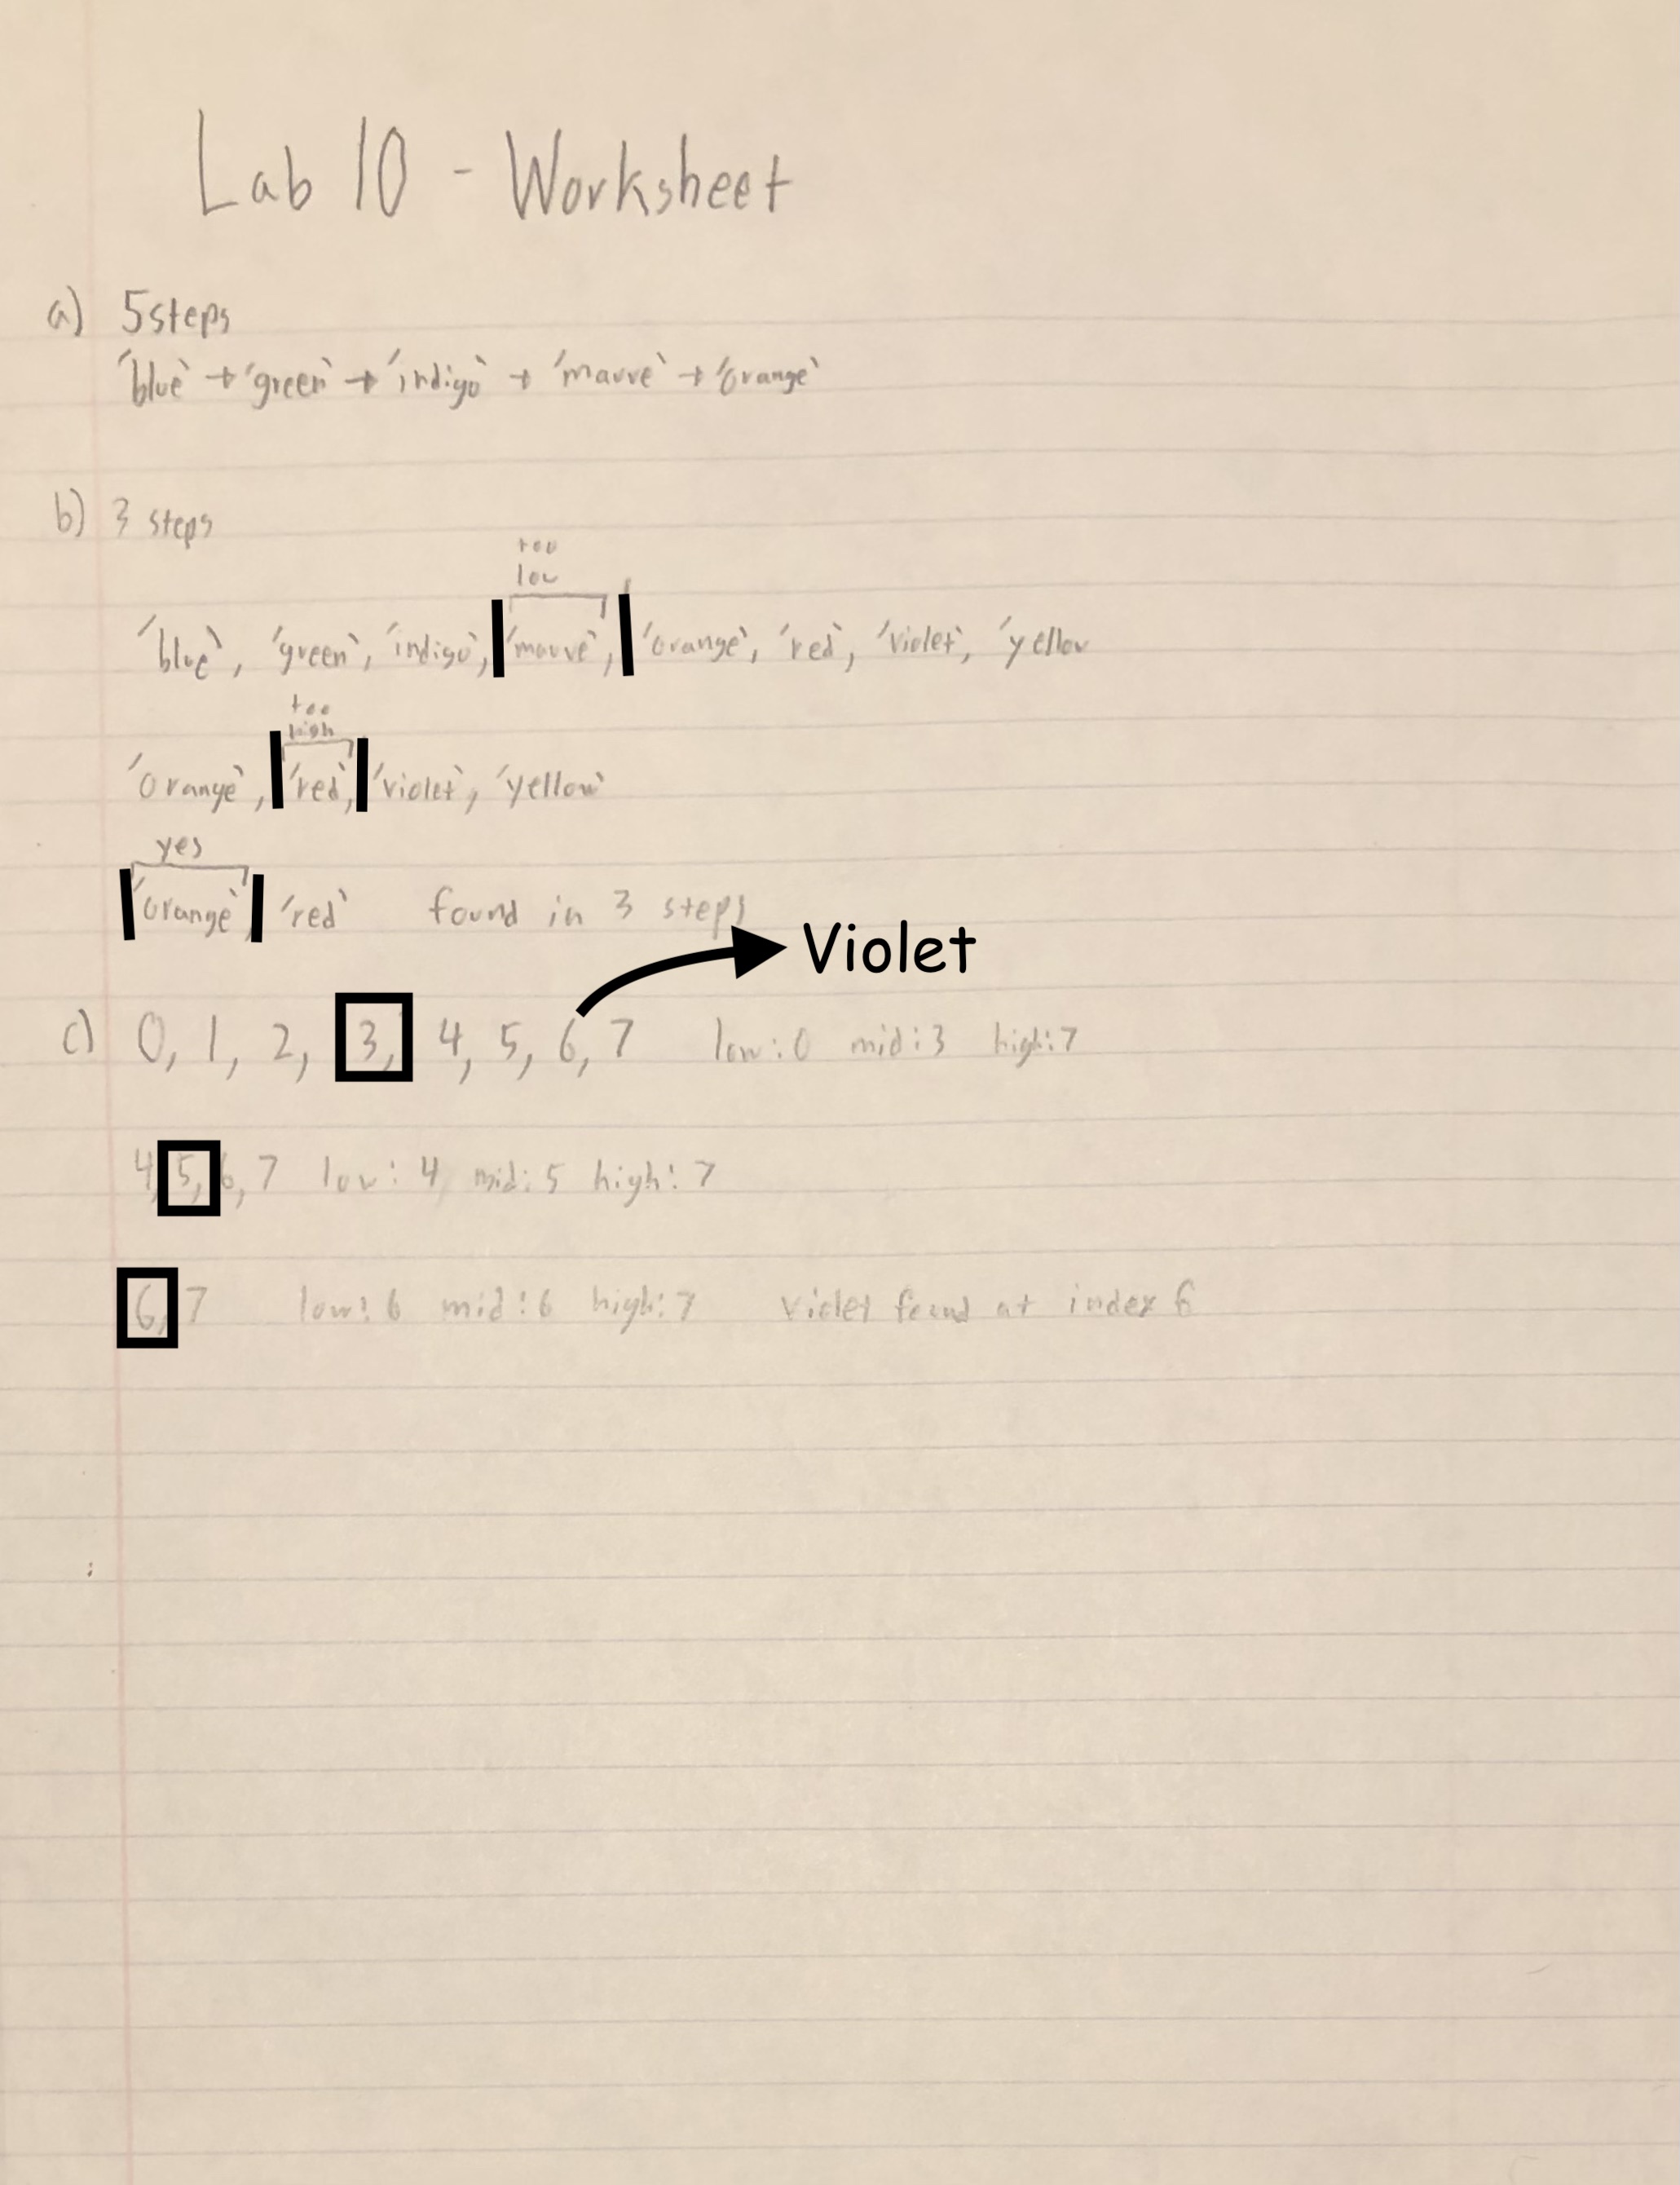 Lab 10 - Worksheet
a) 5 steps
'blue' → 'green' → 'indigo' → 'mauve' → 'orange'
b) 3 steps
too
low
'blue', 'green', 'indigo', 'mauve', 'orange', 'red', 'violet', 'yellow
too
high
'orange', 'red', 'violet', 'yellow'
yes
'orange' 'red' found in 3 steps
Violet
c) 0, 1, 2, 3, 4, 5, 6, 7 low: 0 mid: 3 high: 7
4, 5, 6, 7 low: 4 mid: 5 high: 7
6, 7 low: 6 mid: 6 high: 7 violet found at index 6